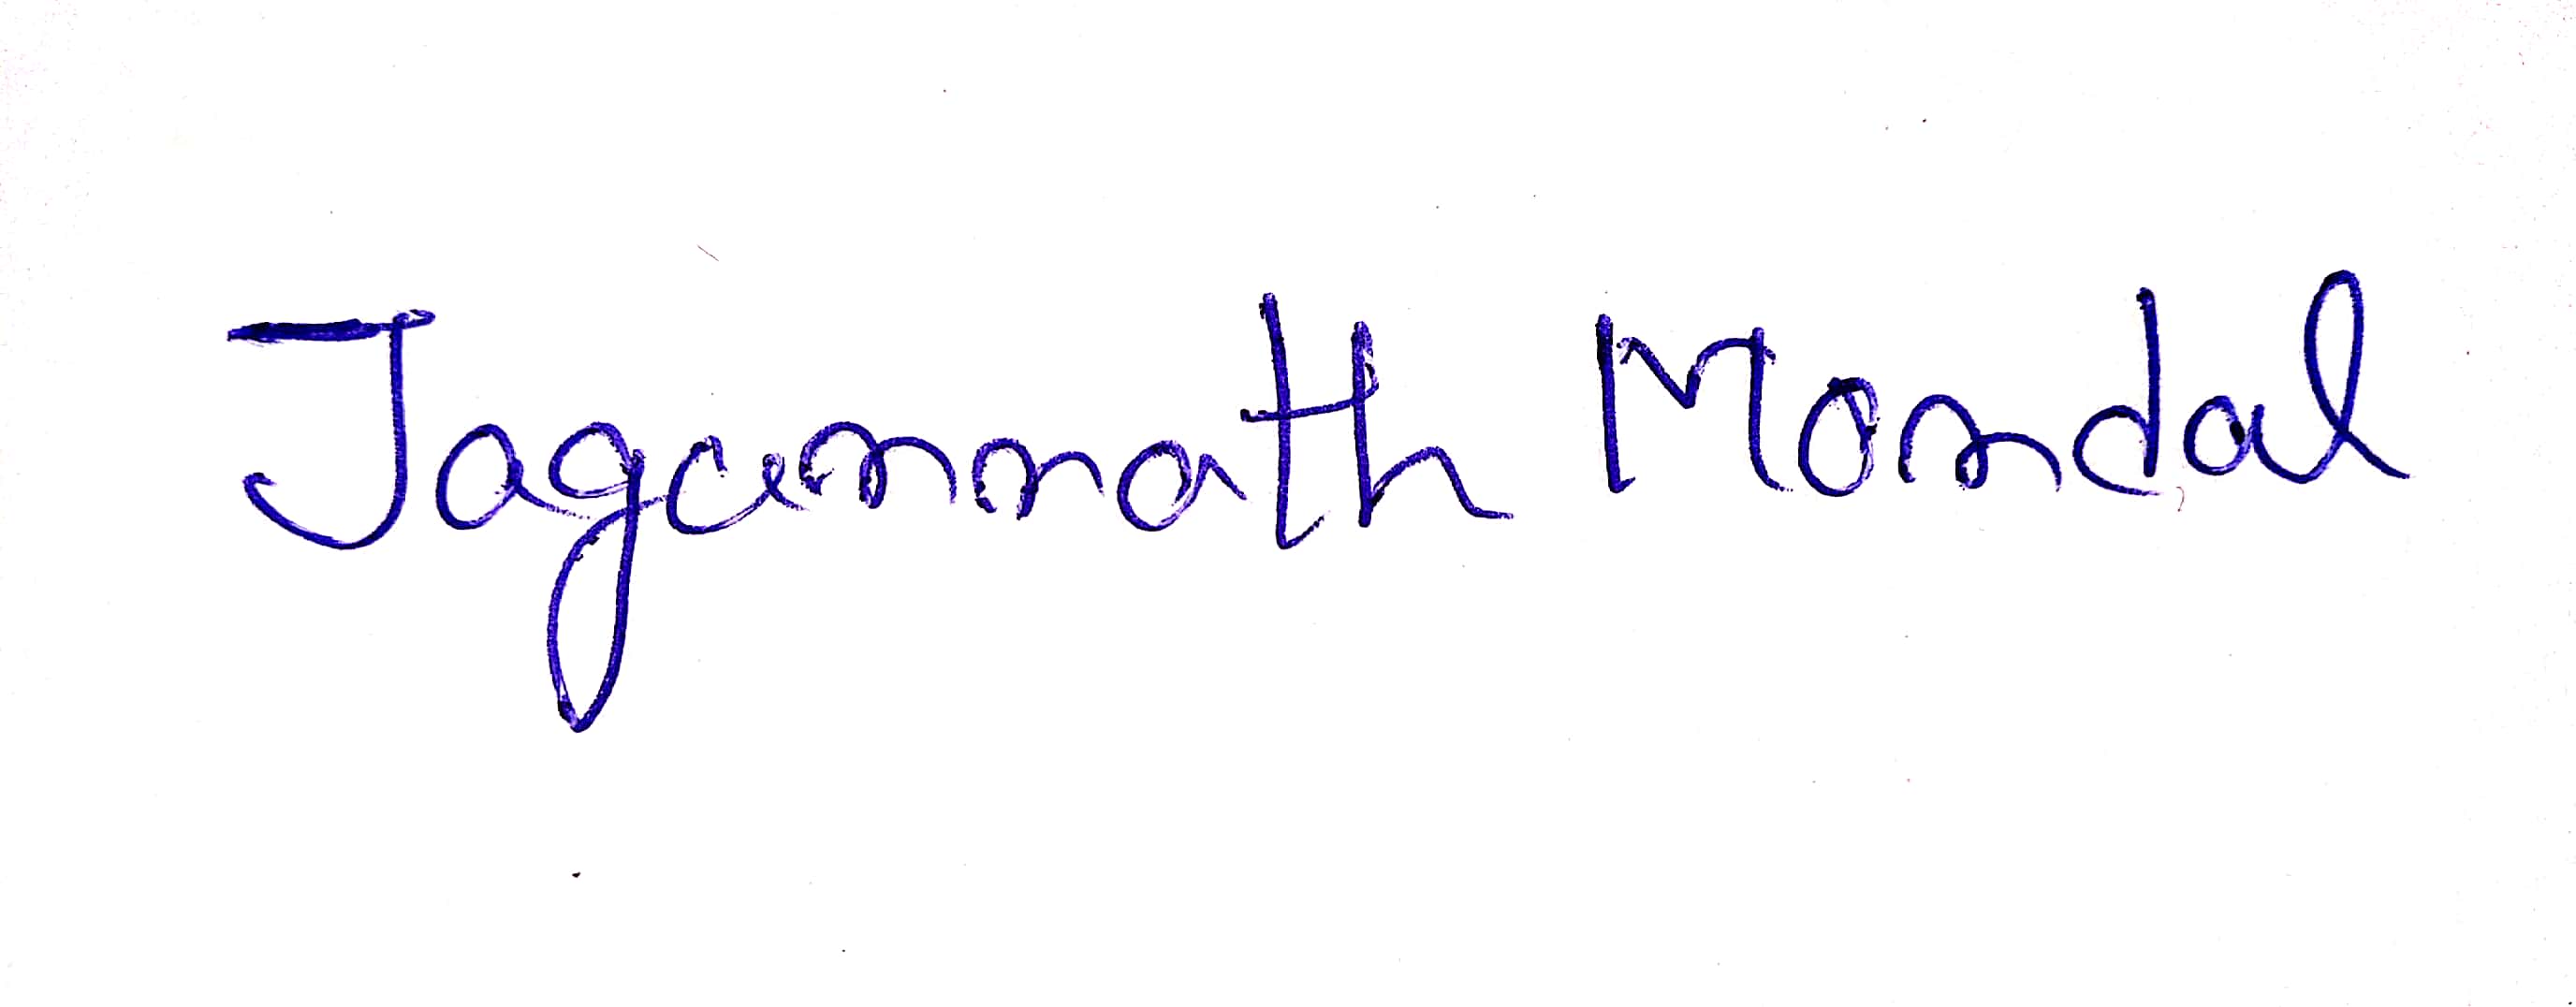 Jagannath Mondal